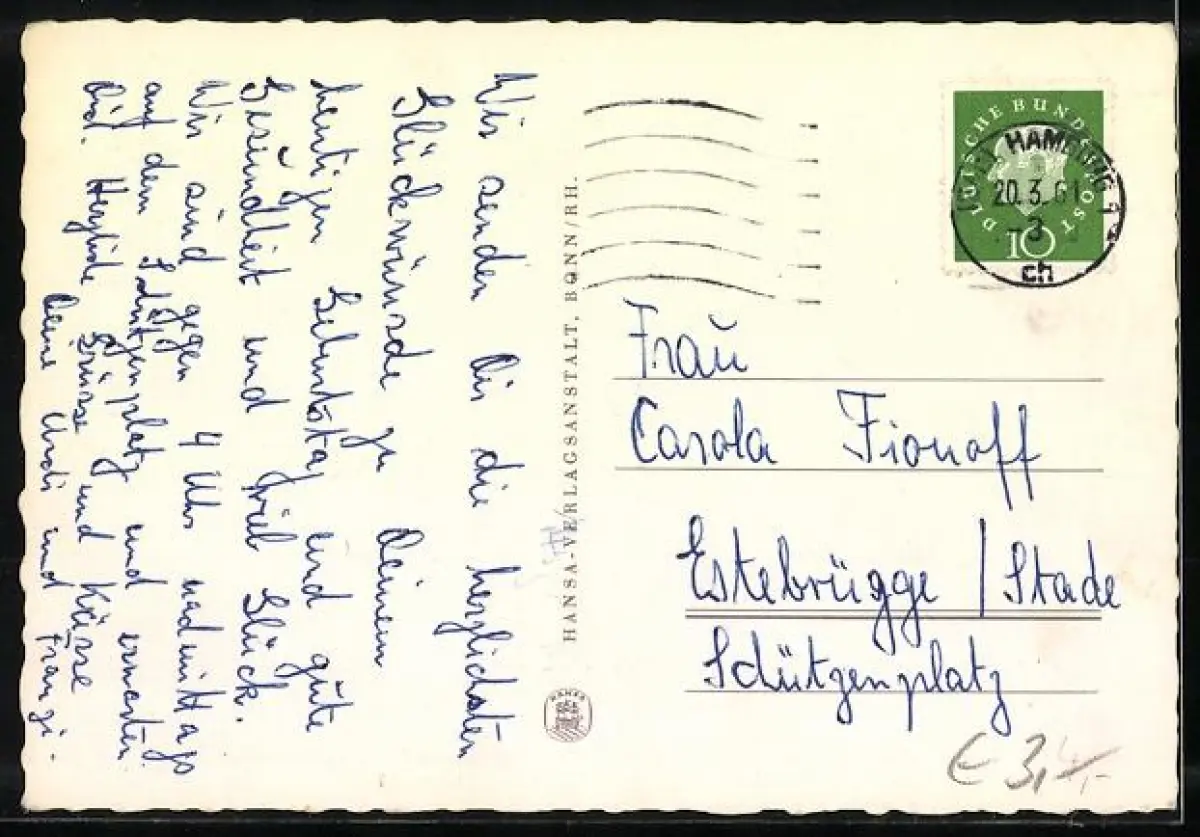 Wir senden Dir die herzlichsten
Glückwünsche zu Deinem
heutigen Geburtstag und gute
Gesundheit und viel Glück.
Wir sind gegen 4 Uhr nachmittags
auf dem Schützenplatz und erwarten
Dich. Herzliche Grüsse und Küsse
Deine und Franzi.
HANSA-VERLAGSANSTALT, BONN/RH.
HANSA
DEUTSCHE BUNDESPOST
10
HAMBURG 1
20.3.61
-3
ch
Frau
Carola Fionoff
Estebrügge / Stade
Schützenplatz
€ 3,-